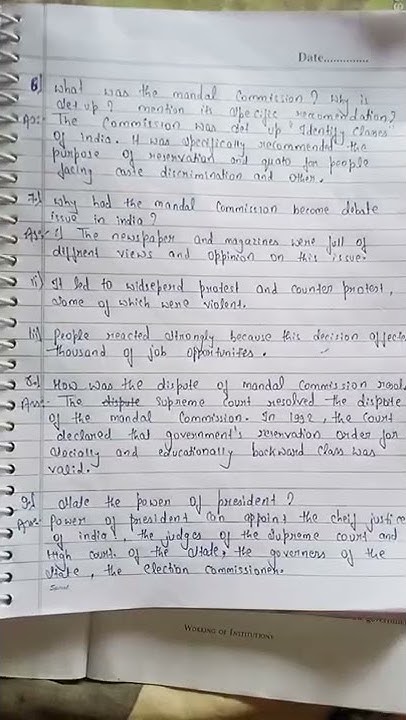 Date..............
6) What was the mandal Commission? Why is
set up? mention its specific recomendation?
Ans:- The Commission was set up "Identify Classes"
of India. It was specifically recommended the
purpose of reservation and quato for people
facing caste discrimination and other.
7.) Why had the mandal Commission become debate
issue in india?
Ans:- i) The newspaper and magazines were full of
diffrent views and oppinion on this issue.
ii) It led to widsepend protest and counter protest,
some of which were violent.
iii) People reacted strongly because this decision affecte
thousand of job opportunities.
8.) How was the dispute of mandal commission resol
Ans:- The dispute Supreme Court resolved the dispute
of the mandal Commission. In 1992, the Court
declared that government's reservation order for
socially and educationally backward class was
valid.
9.) State the power of president?
Ans:- Power of president can appoint the cheif justice
of india, the judges of the supreme court and
High court. of the state, the governers of the
state, the election commissioner.
WORKING OF INSTITUTIONS